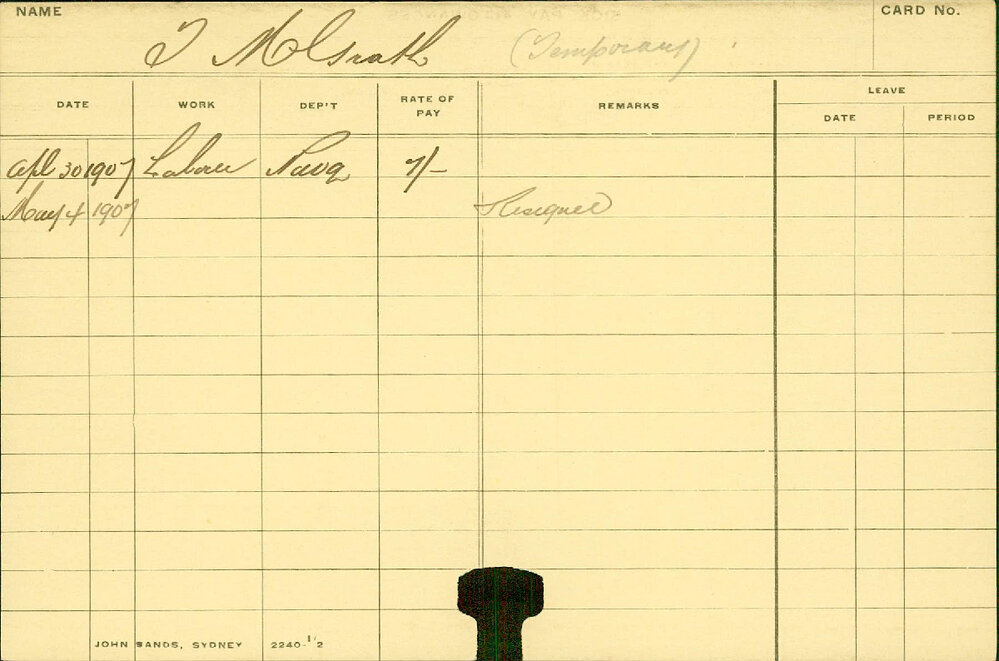 NAME
T McGrath (Temporary)
CARD No.
DATE WORK DEP'T RATE OF PAY REMARKS LEAVE
DATE PERIOD
Apl 30 1907 Labour Navg 7/-
May 4 1907 Resigned
JOHN SANDS, SYDNEY 2240-1/2